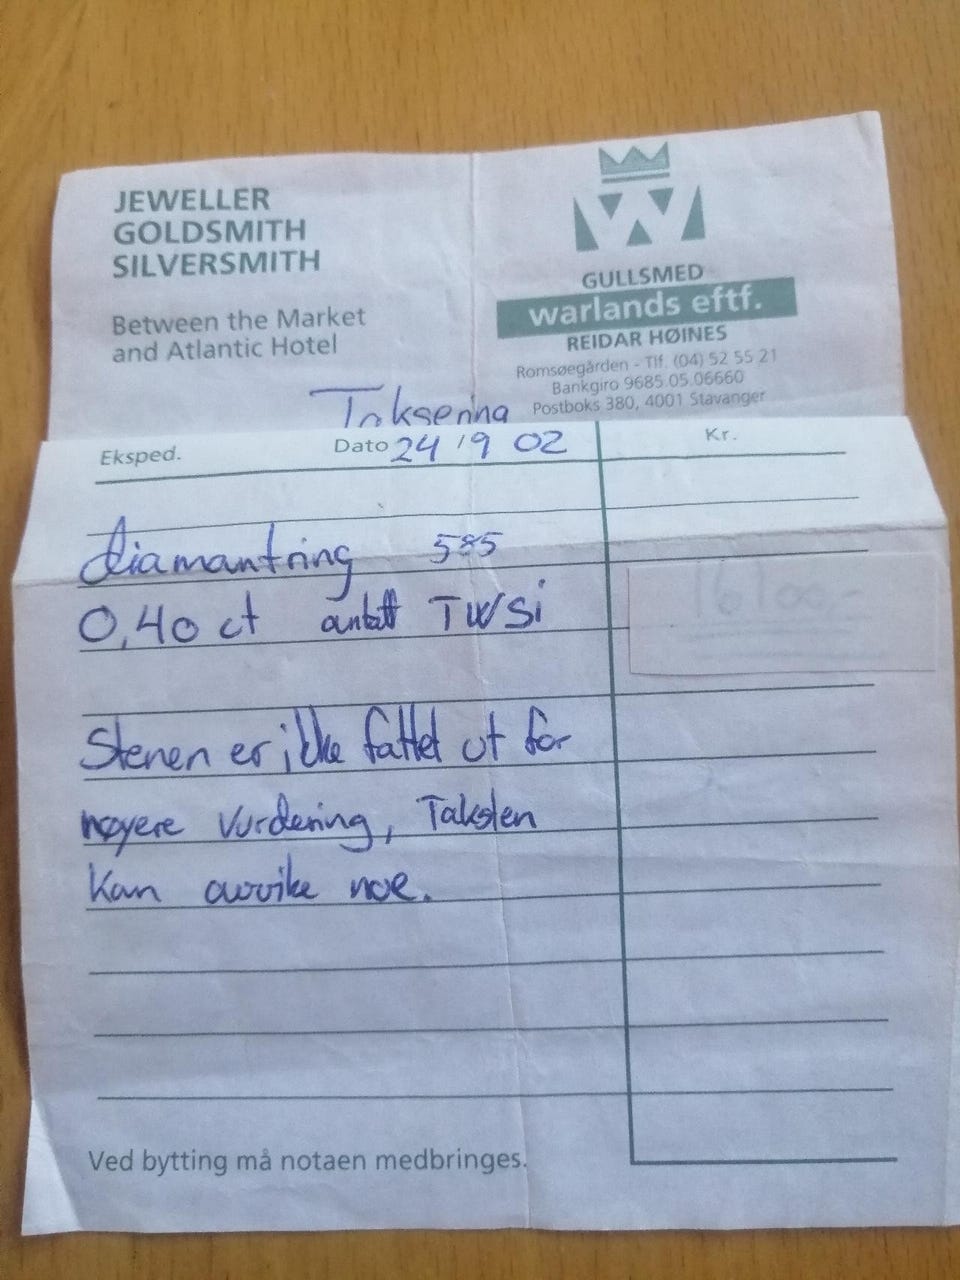 JEWELLER
GOLDSMITH
SILVERSMITH
Between the Market
and Atlantic Hotel
W
GULLSMED
warlands eftf.
REIDAR HØINES
Romsøegården - Tlf. (04) 52 55 21
Bankgiro 9685.05.06660
Postboks 380, 4001 Stavanger
Taksering
Eksped. Dato 24/9 02 Kr.
diamantring 585
0,40 ct antatt TW/Si
Stenen er ikke fattet ut for
nøyere vurdering, Taksten
Kan avvike noe.
Ved bytting må notaen medbringes.